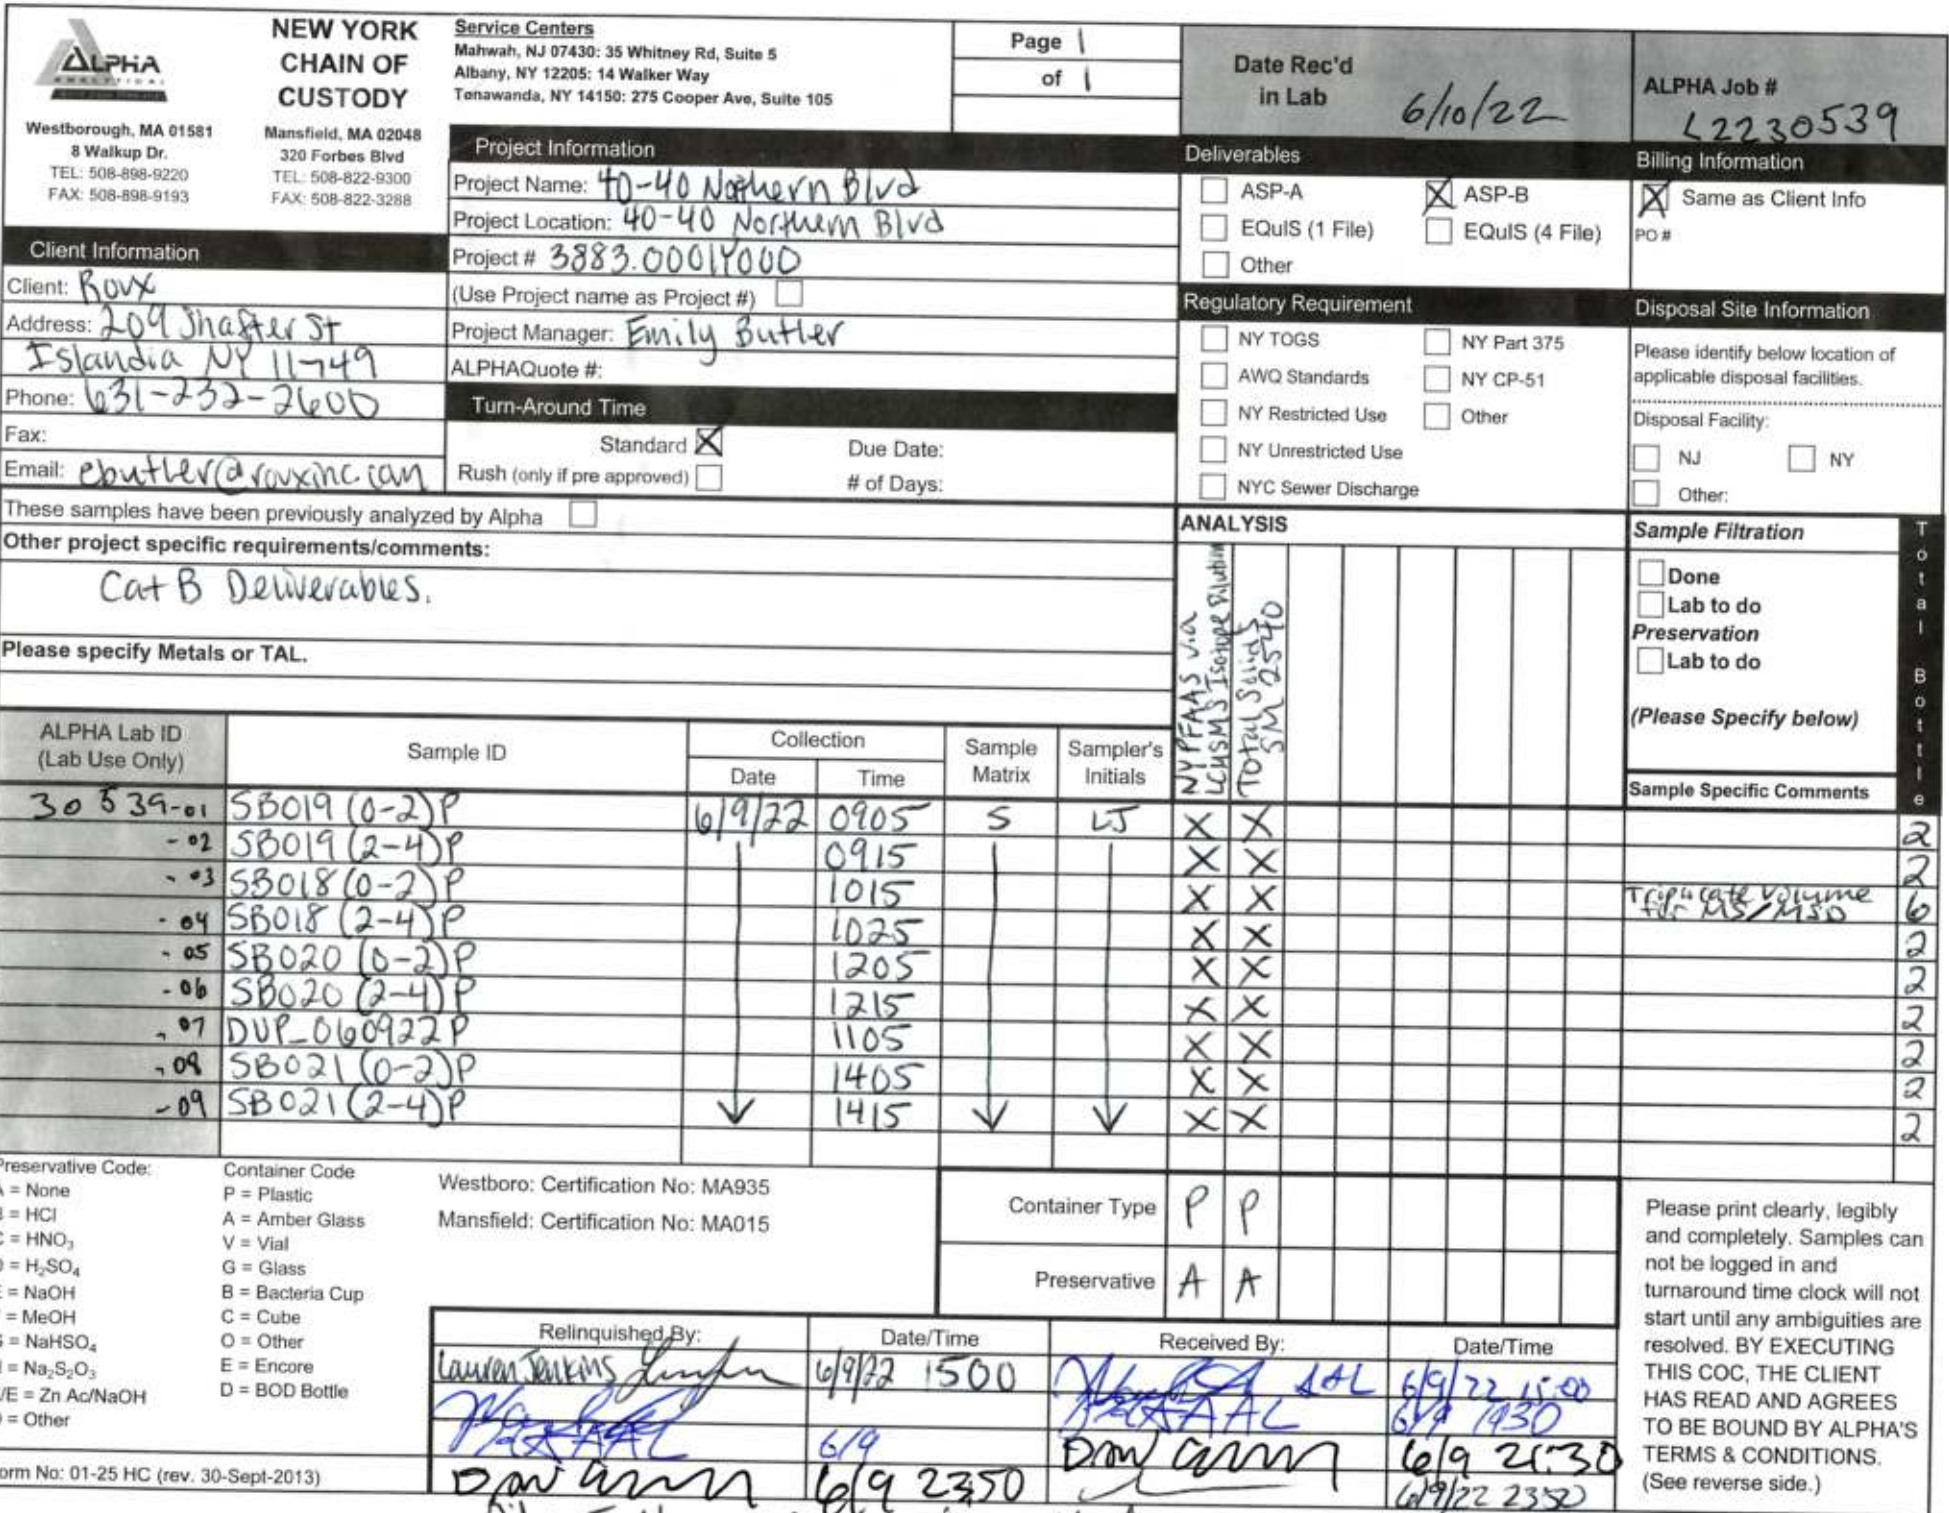 ALPHA
ANALYTICAL
Westborough, MA 01581
8 Walkup Dr.
TEL: 508-898-9220
FAX: 508-898-9193
NEW YORK
CHAIN OF
CUSTODY
Mansfield, MA 02048
320 Forbes Blvd
TEL: 508-822-9300
FAX: 508-822-3288
Service Centers
Mahwah, NJ 07430: 35 Whitney Rd, Suite 5
Albany, NY 12205: 14 Walker Way
Tonawanda, NY 14150: 275 Cooper Ave, Suite 105
Page 1
of 1
Date Rec'd
in Lab 6/10/22
ALPHA Job #
L2230539
Client Information
Client: Roux
Address: 209 Shafter St
Islandia NY 11749
Phone: 631-232-2600
Fax:
Email: ebutler@rouxinc.com
Project Information
Project Name: 40-40 Northern Blvd
Project Location: 40-40 Northern Blvd
Project # 3883.0001Y000
(Use Project name as Project #)
Project Manager: Emily Butler
ALPHAQuote #:
Turn-Around Time
Standard X Due Date:
Rush (only if pre approved) # of Days:
Deliverables
ASP-A X ASP-B
EQuIS (1 File) EQuIS (4 File)
Other
Regulatory Requirement
NY TOGS NY Part 375
AWQ Standards NY CP-51
NY Restricted Use Other
NY Unrestricted Use
NYC Sewer Discharge
Billing Information
X Same as Client Info
PO #
Disposal Site Information
Please identify below location of
applicable disposal facilities.
Disposal Facility:
NJ NY
Other:
These samples have been previously analyzed by Alpha
Other project specific requirements/comments:
Cat B Deliverables.
Please specify Metals or TAL.
ANALYSIS
NY PFAAS via
LCMSMS Isotope Dilution
Total Solids
SM 2540
Sample Filtration
Done
Lab to do
Preservation
Lab to do
(Please Specify below)
Total Bottle
ALPHA Lab ID
(Lab Use Only)
Sample ID
Collection
Date Time
Sample
Matrix
Sampler's
Initials
Sample Specific Comments
30539-01 SB019 (0-2)P 6/9/22 0905 S LJ X X 2
-02 SB019 (2-4)P 0915 X X 2
-03 SB018 (0-2)P 1015 X X Triplicate Volume for MS/MSD 6
-04 SB018 (2-4)P 1025 X X 2
-05 SB020 (0-2)P 1205 X X 2
-06 SB020 (2-4)P 1215 X X 2
-07 DUP_060922P 1105 X X 2
-08 SB021 (0-2)P 1405 X X 2
-09 SB021 (2-4)P 1415 X X 2
Preservative Code:
A = None
B = HCl
C = HNO₃
D = H₂SO₄
E = NaOH
F = MeOH
G = NaHSO₄
H = Na₂S₂O₃
K/E = Zn Ac/NaOH
O = Other
Container Code
P = Plastic
A = Amber Glass
V = Vial
G = Glass
B = Bacteria Cup
C = Cube
O = Other
E = Encore
D = BOD Bottle
Westboro: Certification No: MA935
Mansfield: Certification No: MA015
Container Type P P
Preservative A A
Relinquished By: Date/Time Received By: Date/Time
Lauren Jenkins 6/9/22 1500 AAL 6/9/22 15:00
AAL 6/9 AAL 6/9 1930
6/9 21:30
6/9 2350 6/9/22 2350
Please print clearly, legibly
and completely. Samples can
not be logged in and
turnaround time clock will not
start until any ambiguities are
resolved. BY EXECUTING
THIS COC, THE CLIENT
HAS READ AND AGREES
TO BE BOUND BY ALPHA'S
TERMS & CONDITIONS.
(See reverse side.)
Form No: 01-25 HC (rev. 30-Sept-2013)